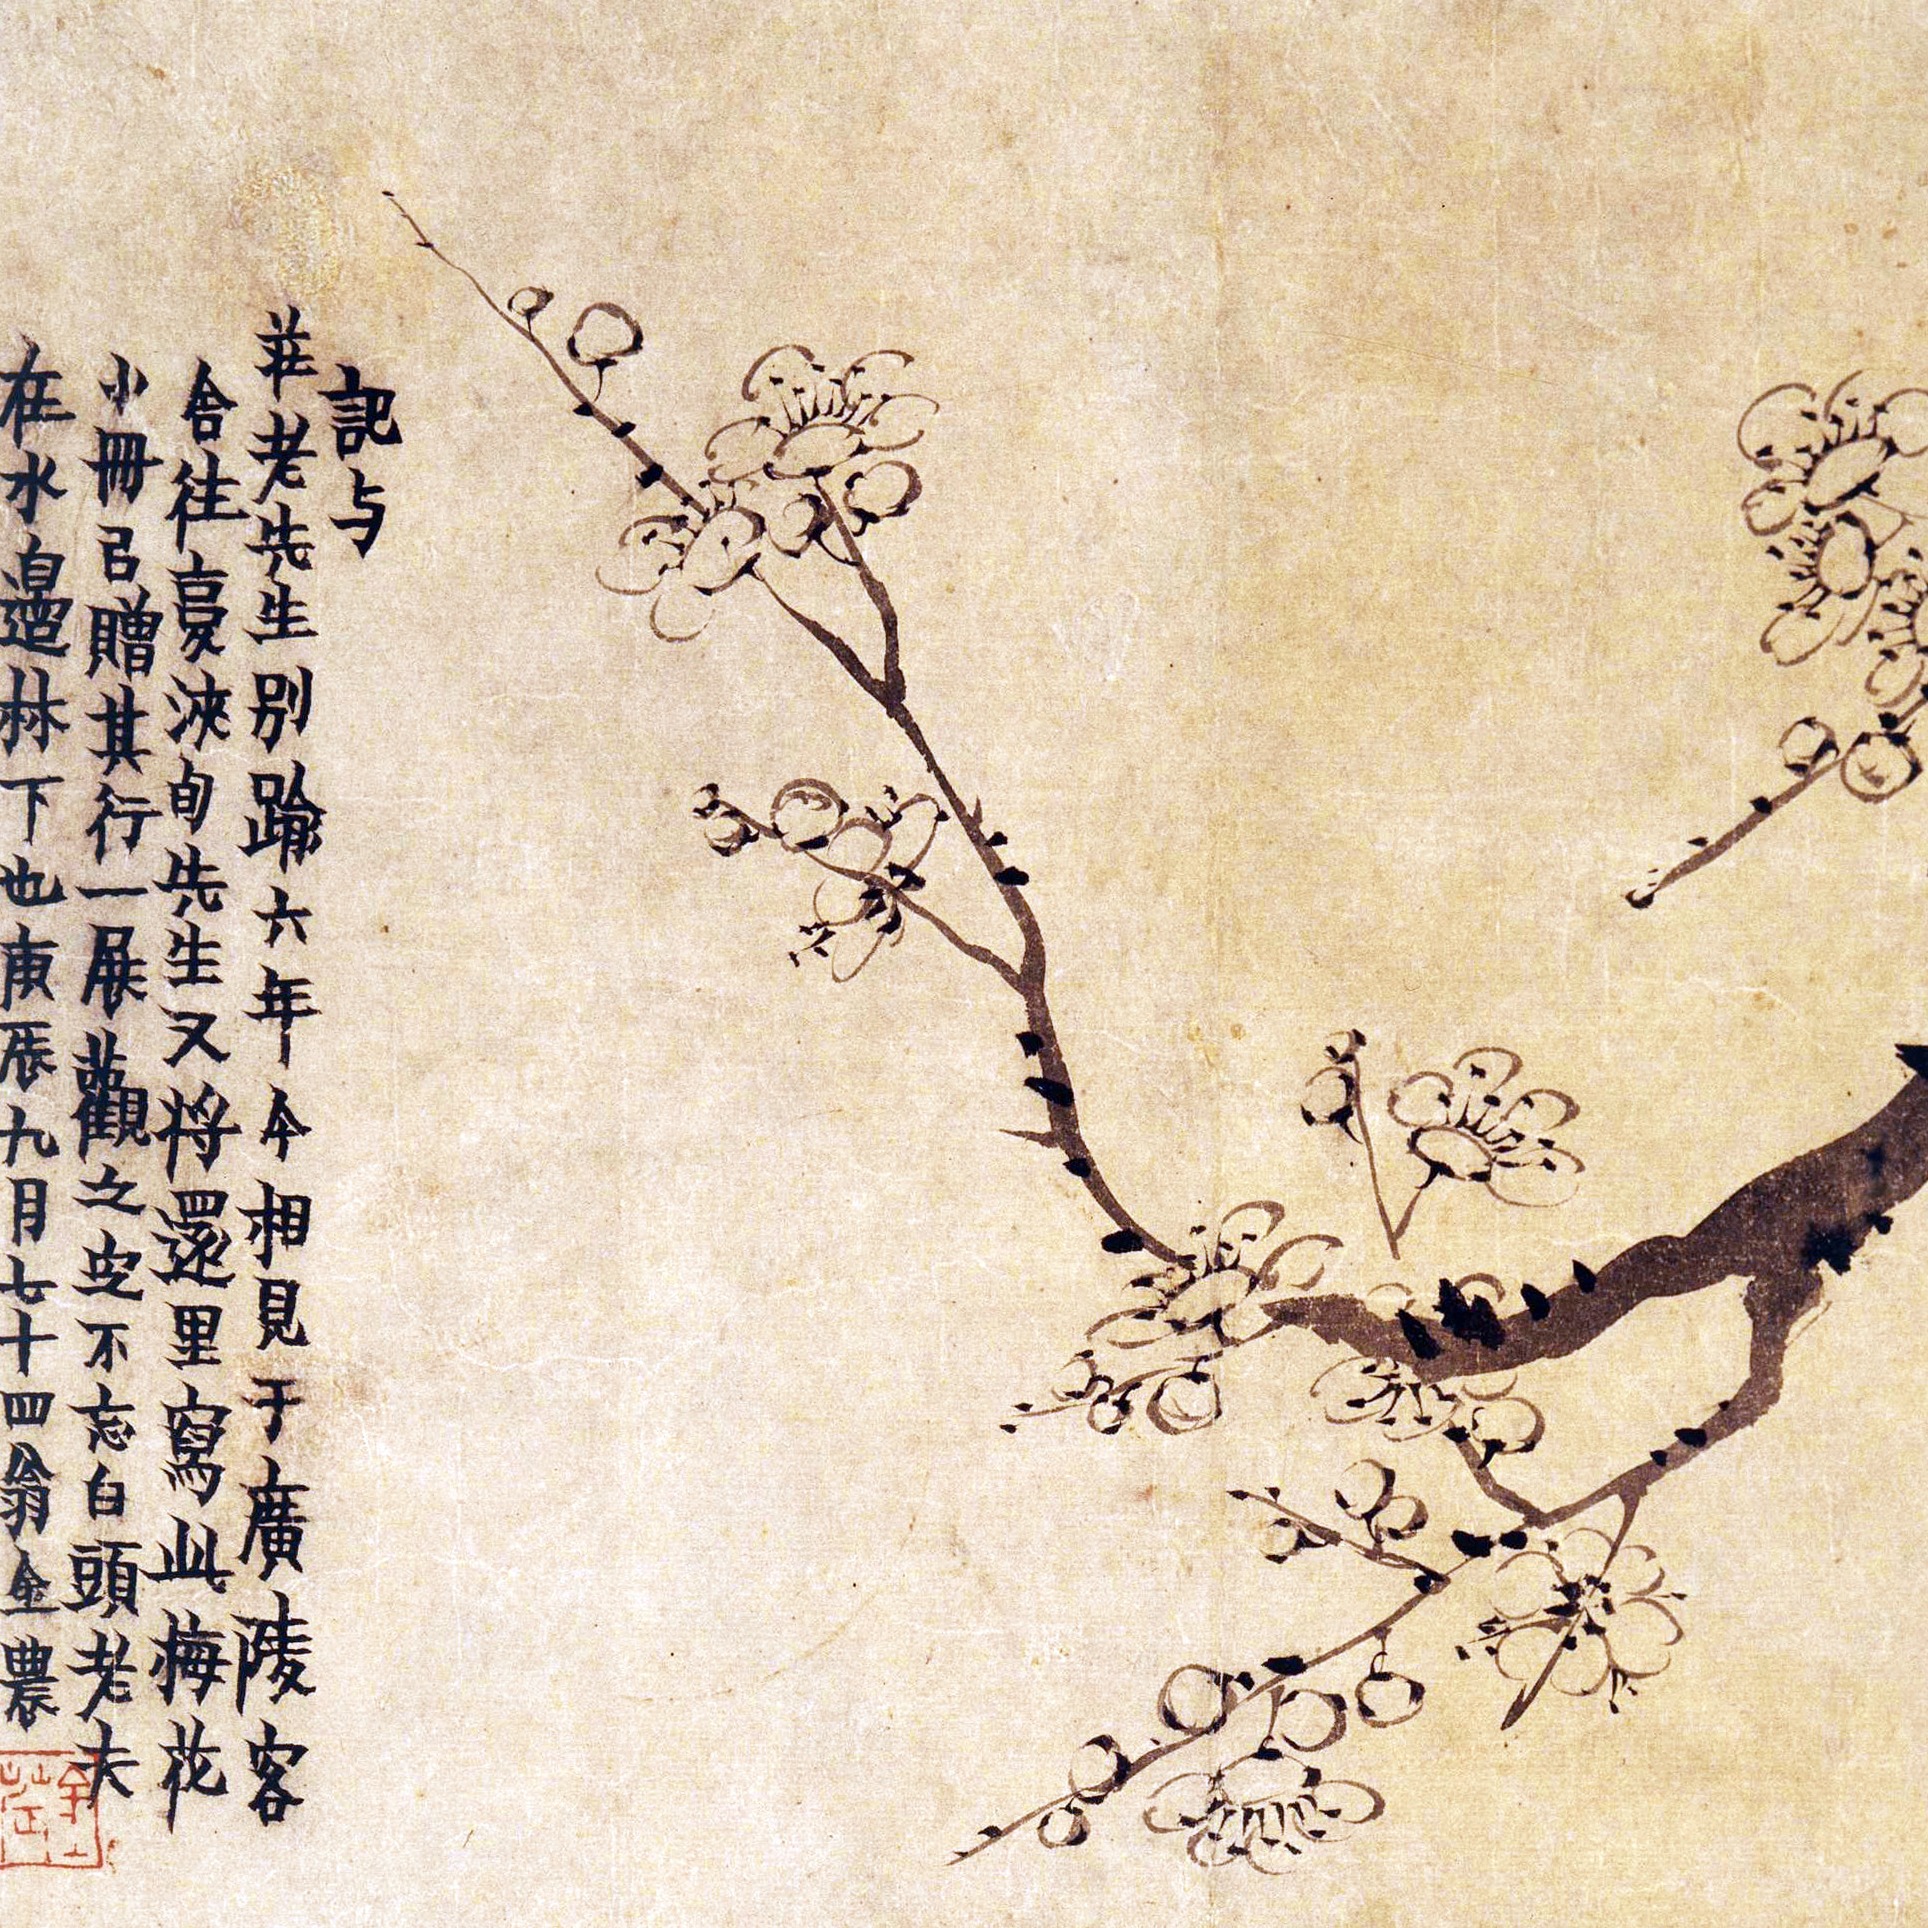 記与
莊老先生別踰六年今相見于廣陵客
舍往還浹旬先生又將還里寫此梅花
小冊㠯贈其行一展觀之定不忘白頭老夫
在水邊林下也庚辰九月七十四翁金農